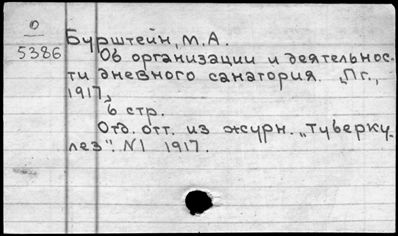 О
5386
Бурштейн, М.А.
Об организации и деятельнос-
ти дневного санатория. [Пг.,
1917]
6 стр.
Отд. отт. из журн. „Туберку-
лез". N1 1917.